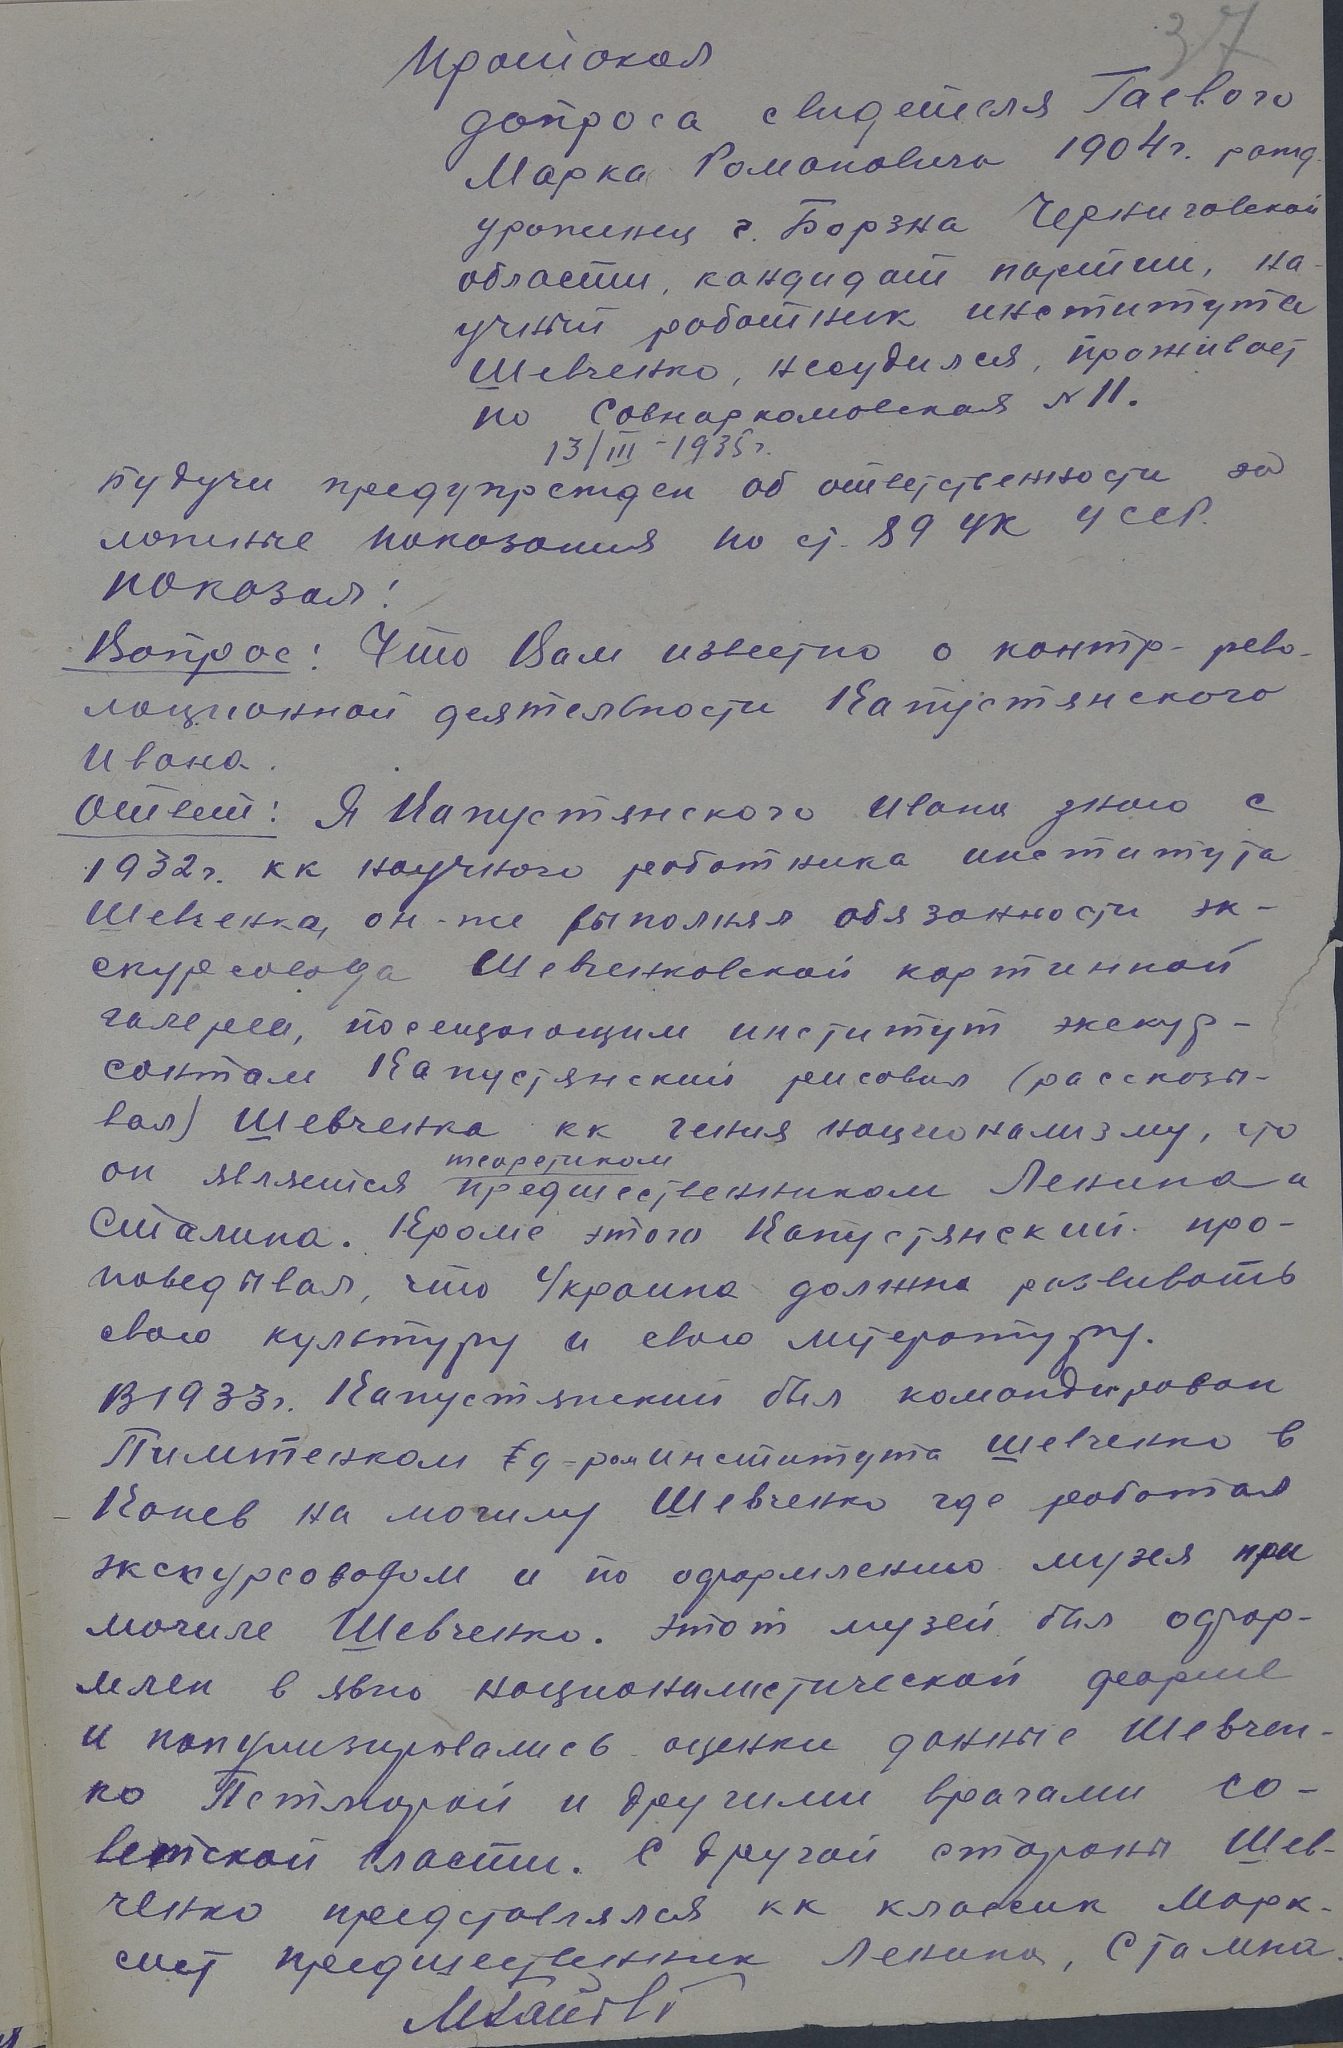 37
Протокол
допроса свидетеля Гаевого
Марка Романовича 1904 г. рожд.
уроженец г. Борзна Черниговской
области, кандидат партии, на-
учный работник института
Шевченко, несудился, проживает
по Совнаркомовская № 11.
13/III - 1935 г.
будучи предупрежден об ответственности за
ложные показания по ст. 89 УК УССР.
показал:
Вопрос: Что Вам известно о контр-рево-
люционной деятельности Капустянского
Ивана.
Ответ: Я Капустянского Ивана знаю с
1932 г. кк научного работника института
Шевченка, он-же выполнял обязанности эк-
скурсовода Шевченковской картинной
галереи, посещающим институт экскур-
сантам Капустянский рисовал (рассказы-
вал) Шевченка кк гения национализму, что
теоретиком
он является предшественником Ленина и
Сталина. Кроме этого Капустянский про-
поведывал, что Украина должна развивать
свою культуру и свою литературу.
В 1933 г. Капустянский был командирован
д-ром института Шевченко в
Канев на могилу Шевченко где работал
экскурсоводом и по оформлению музея при
могиле Шевченко. Этот музей был офор-
млен в явно националистической форме
и популизировались оценки данные Шевчен-
ко Петлюрой и другими врагами со-
ветской власти. С другой стороны Шев-
ченко представлялся кк классик марк-
сист предшественник Ленина, Сталина